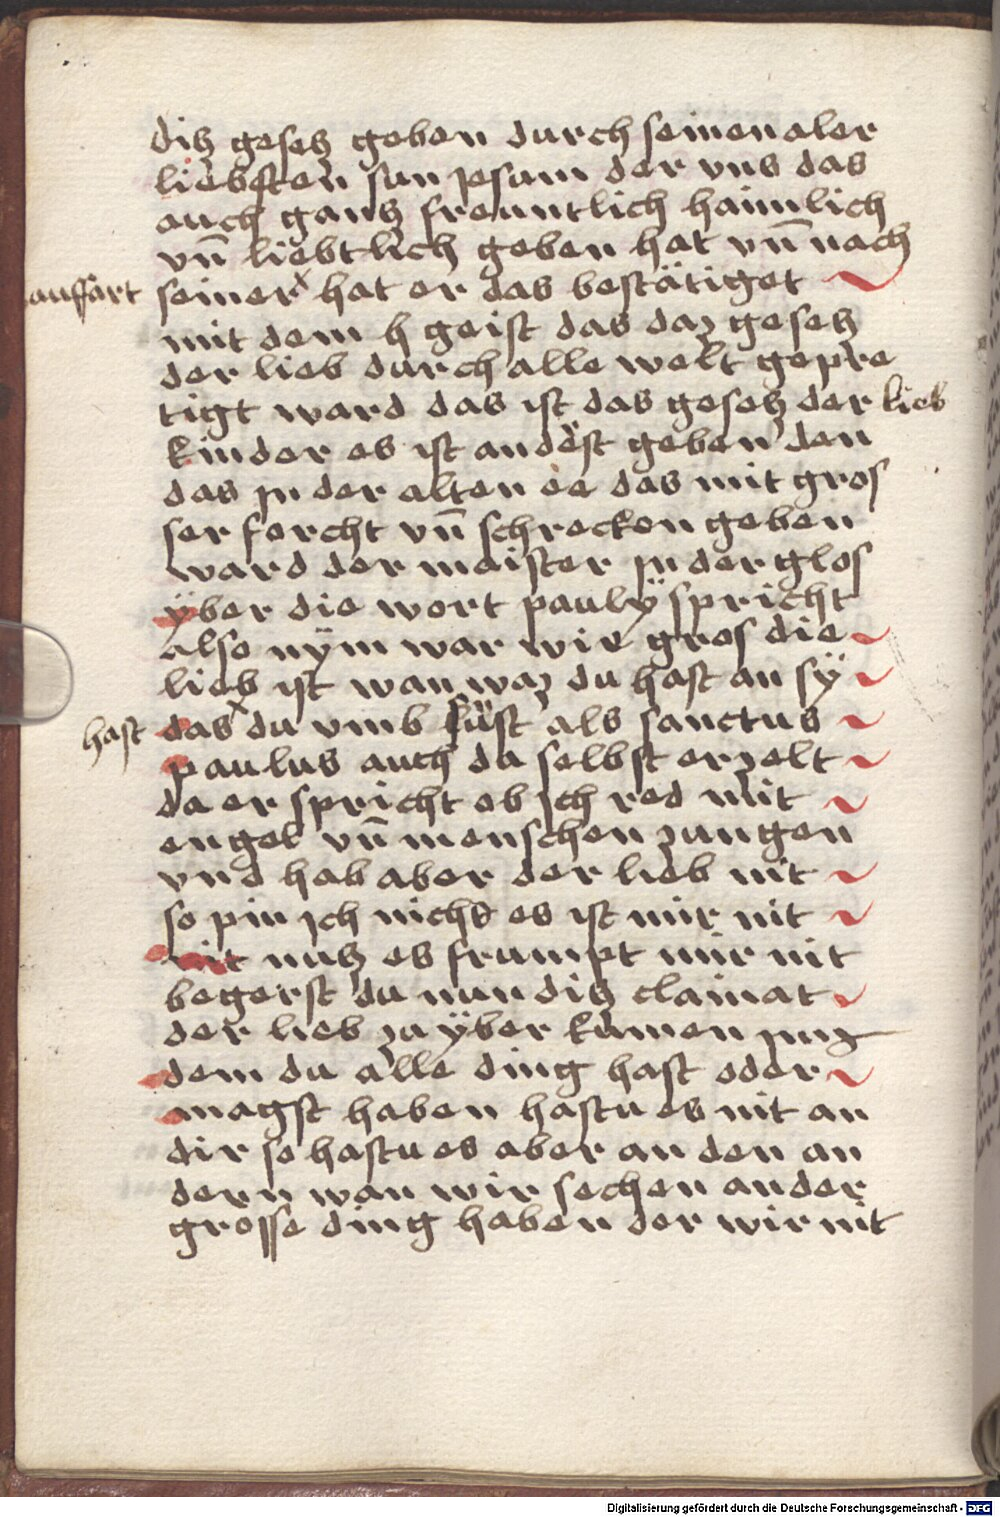 ditz gesetz geben durch seinen aler
liebsten sun jesum der vns das
auch gantz freuntlich haimlich
vn̄ liebtlich geben hat vn̄ nach
auffart seiner x hat er das bestätiget
mit dem h geist das daz gesetz
der lieb durch alle welt gepre
tigt ward das ist das gesetz der lieb
kinder es ist andest geben den
das jn der alten ee das mit gros
ser forcht vn̄ schrecken geben
ward der maister jn der glos
ÿber die wort paulÿ spricht
also nÿm war wie gros die
lieb ist wan waz du hast an sÿ
hast das x du vmb süst als sanctus
paulus auch da selbst erzelt
da er spricht ob jch red mit
engel vn̄ menschen zungen
vnd hab aber der lieb nit
so pin jch nicht es ist mir nit
nit nutz es frumpt mir nit
begerst du nun ditz clainat
der lieb zu ÿber kumen jnn
dem du alle ding hast oder
magst haben hastu es nit an
dir so hastu es aber an den an
dern wan wir sechen ander
grosse ding haben der wir nit
Digitalisierung gefördert durch die Deutsche Forschungsgemeinschaft - DFG